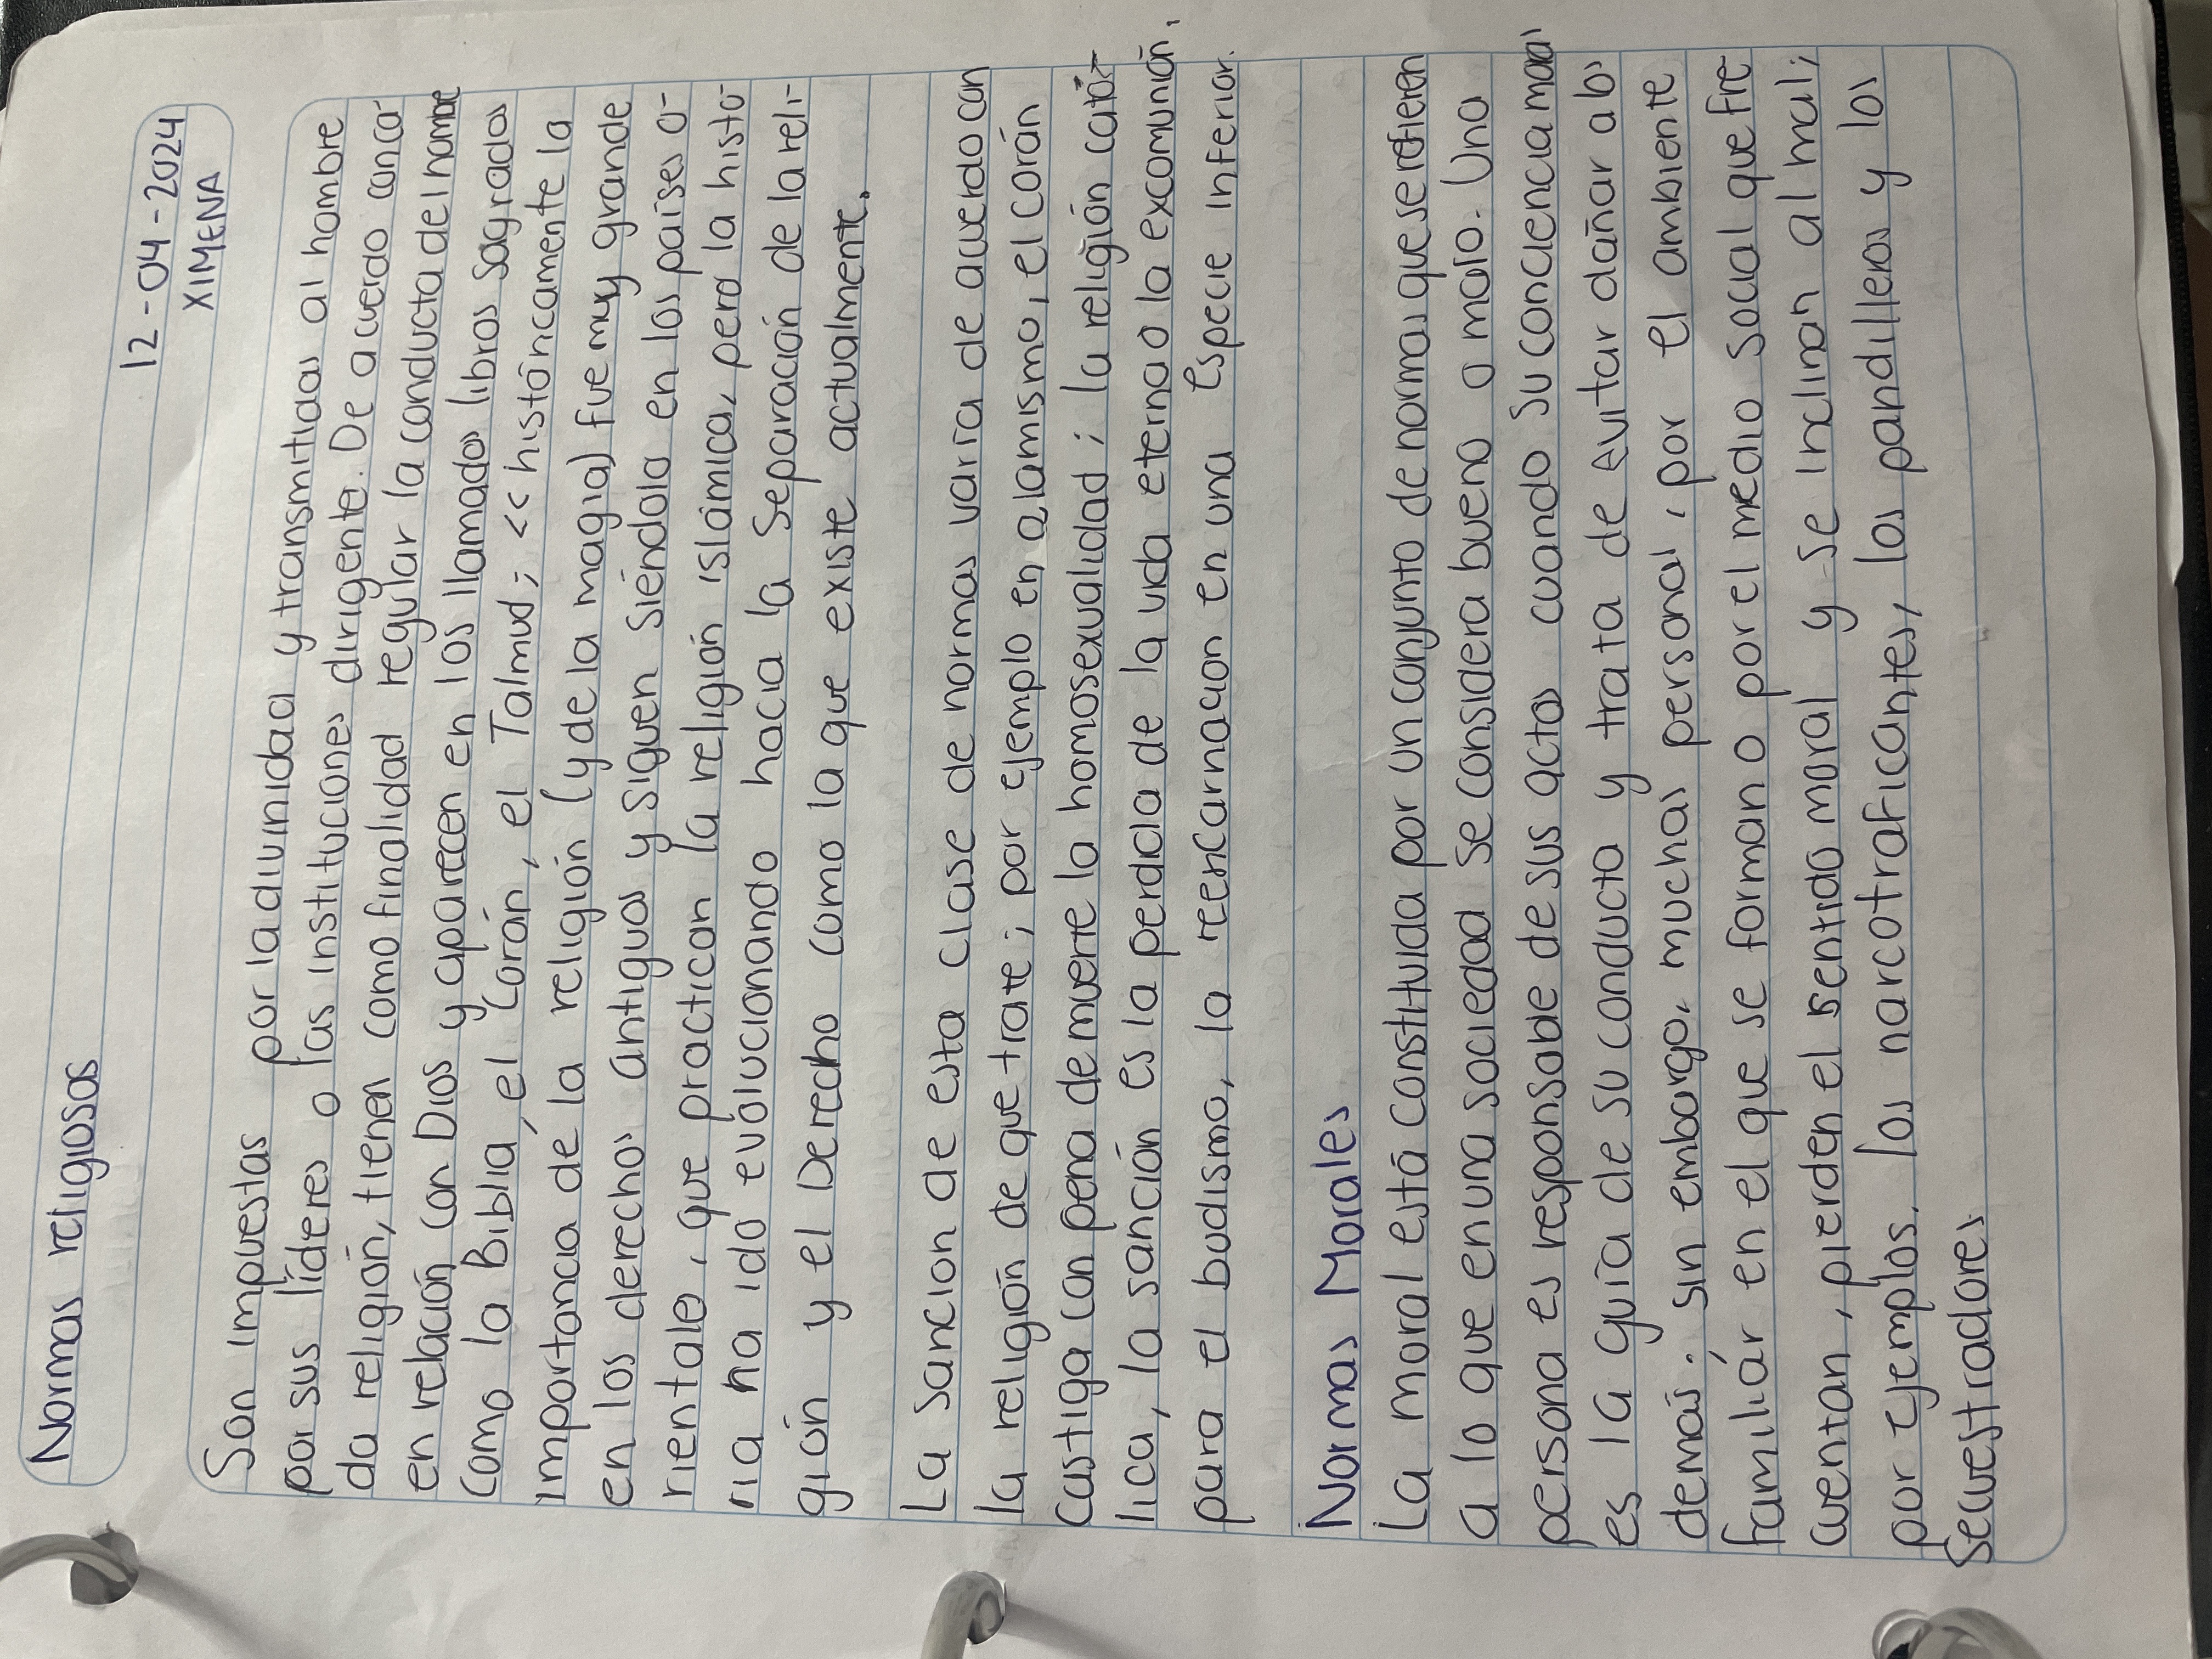 Normas religiosas
12-04-2024
XIMENA
Son impuestas por la divinidad y transmitidas al hombre
por sus líderes o las instituciones dirigente. De acuerdo con ca-
da religión, tienen como finalidad regular la conducta del hombre
en relación con Dios y aparecen en los llamados libros sagrados
como la Biblia, el Corán, el Talmud; << históricamente la
importancia de la religión (y de la magia) fue muy grande
en los derechos antiguos y siguen siéndola en los países o-
rientales, que practican la religión islámica, pero la histo-
ria ha ido evolucionando hacia la separación de la reli-
gión y el Derecho como la que existe actualmente.
La sancion de esta clase de normas varía de acuerdo con
la religión de que trate; por ejemplo en alamismo, el corán
castiga con pena de muerte la homosexualidad; la religión cató-
lica, la sanción es la perdida de la vida eterna o la excomunión,
para el budismo, la reencarnacion en una especie inferior.
Normas Morales
La moral está constituida por un conjunto de normas que se refieren
a lo que en una sociedad se considera bueno o malo. Una
persona es responsable de sus actos cuando su conciencia moral
es la guía de su conducta y trata de evitar dañar a los
demás. sin embargo, muchas personas, por el ambiente
familiár en el que se forman o por el medio social que fre
cuentan, pierden el sentido moral y se inclinan al mal;
por ejemplos, los narcotraficantes, los pandilleros y los
secuestradores